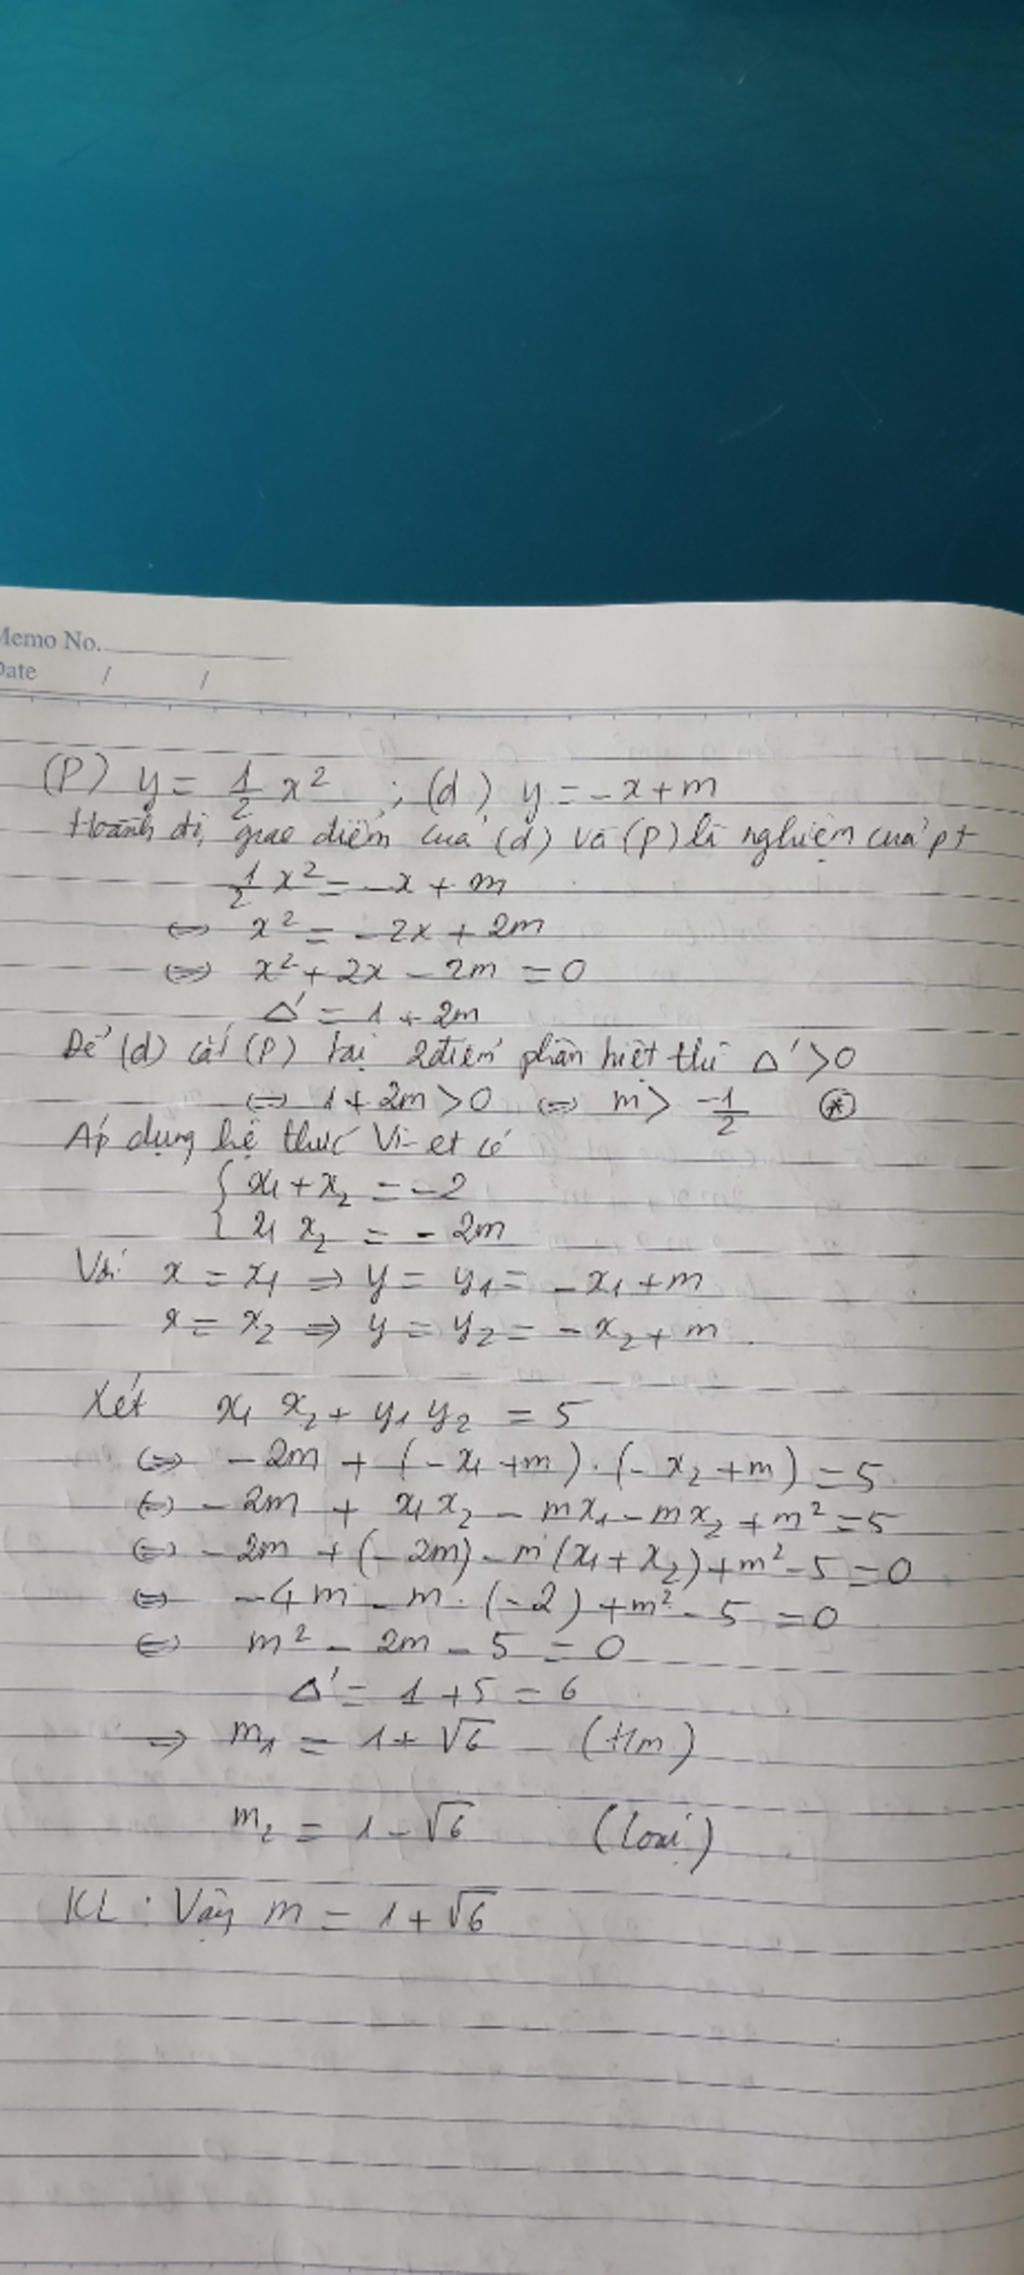 Memo No.
Date / /
(P) y = 1/2 x² ; (d) y = -x + m
Hoành độ giao điểm của (d) và (P) là nghiệm của pt
1/2 x² = -x + m
⇔ x² = -2x + 2m
⇔ x² + 2x - 2m = 0
Δ' = 1 + 2m
Để (d) cắt (P) tại 2 điểm phân biệt thì Δ' > 0
⇔ 1 + 2m > 0 ⇔ m > -1/2 ⊛
Áp dụng hệ thức Vi-et có
{ x₁ + x₂ = -2
{ x₁ x₂ = - 2m
Với x = x₁ ⇒ y = y₁ = -x₁ + m
x = x₂ ⇒ y = y₂ = -x₂ + m
Xét x₁ x₂ + y₁ y₂ = 5
⇔ -2m + (-x₁ + m) . (-x₂ + m) = 5
⇔ -2m + x₁x₂ - mx₁ - mx₂ + m² = 5
⇔ -2m + (-2m) - m(x₁ + x₂) + m² - 5 = 0
⇔ -4m - m . (-2) + m² - 5 = 0
⇔ m² - 2m - 5 = 0
Δ' = 1 + 5 = 6
⇒ m₁ = 1 + √6 (t/m)
m₂ = 1 - √6 (loại)
KL : Vậy m = 1 + √6